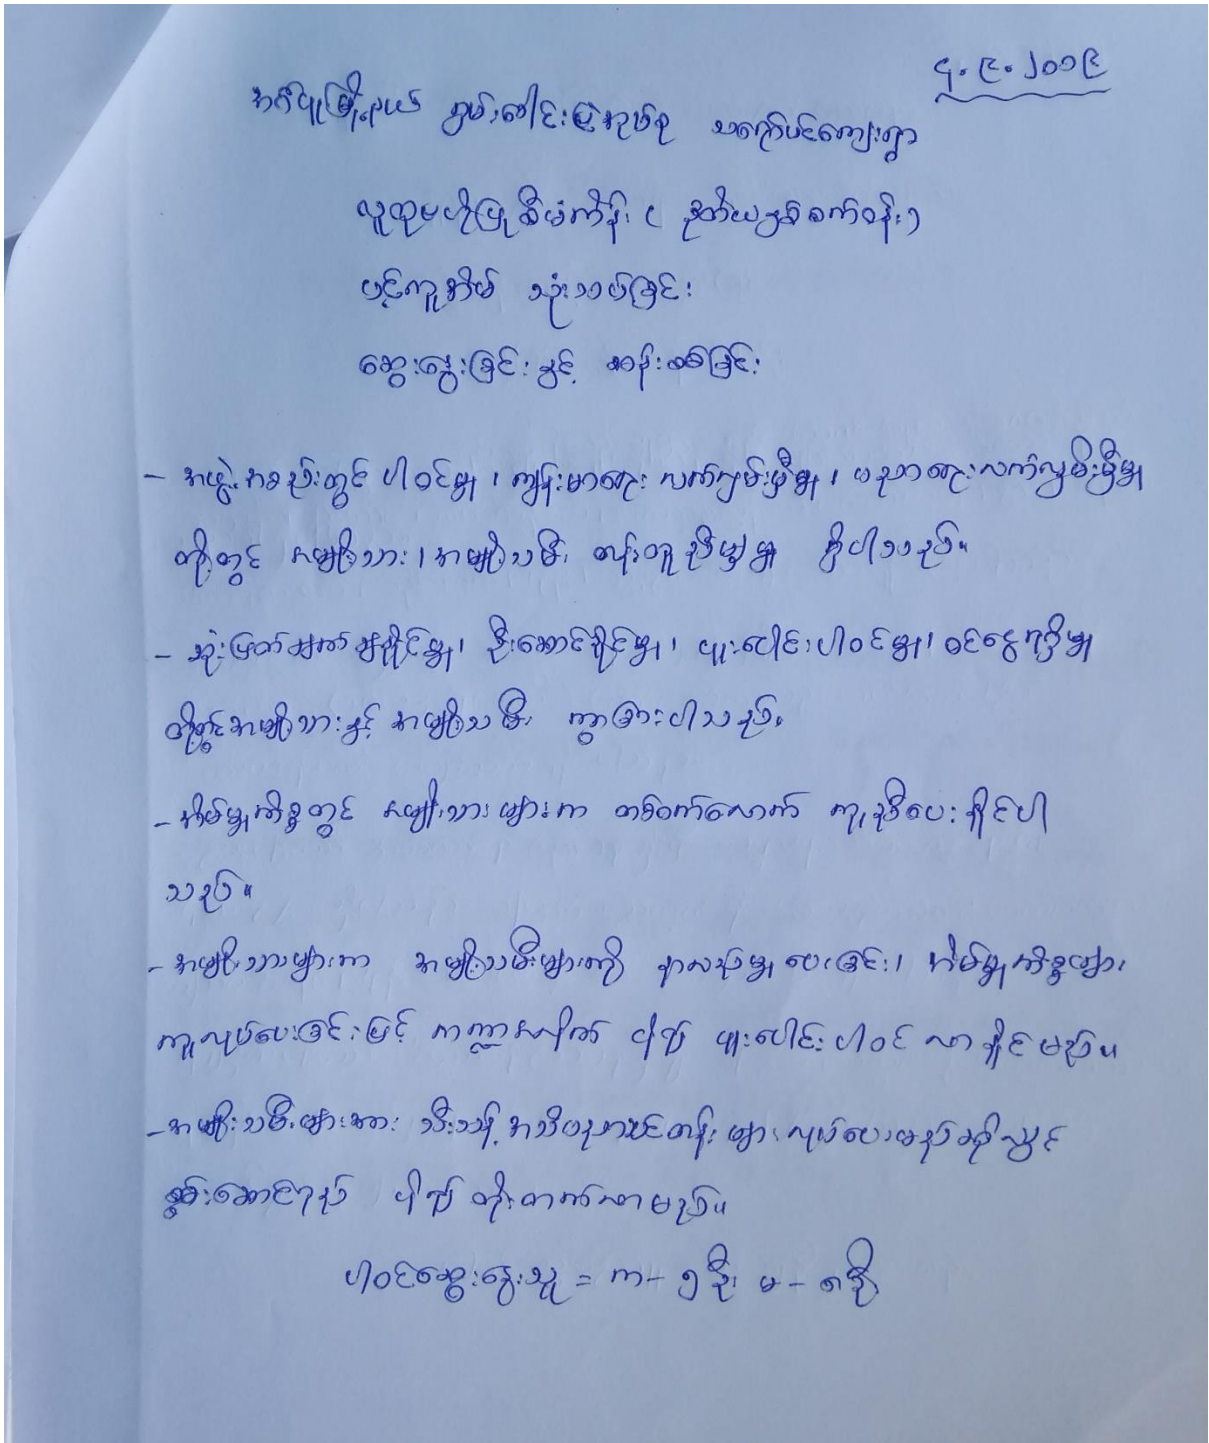 ၄.၉.၂၀၁၉
အင်ပူမြို့နယ် ကျေးရွာ
လူထုဗဟိုပြုစီမံကိန်း ( ဒုတိယနှစ်စက်ဝန်း )
ပင့်ကူအိမ် သုံးသပ်ခြင်း
ဆွေးနွေးခြင်းနှင့် ဆန်းစစ်ခြင်း
- အဖွဲ့အစည်းတွင် ပါဝင်မှု၊ ကျန်းမာရေး လက်လှမ်းမှီမှု၊ ပညာရေးလက်လှမ်းမှီမှု
တို့တွင် အမျိုးသား၊ အမျိုးသမီး တန်းတူညီမျှမှု ရှိပါသည်။
- ဆုံးဖြတ်ချက်ချနိုင်မှု၊ ဦးဆောင်နိုင်မှု၊ ပူးပေါင်းပါဝင်မှု၊ ဝင်ငွေရရှိမှု
တို့တွင်အမျိုးသားနှင့် အမျိုးသမီး ကွာခြားပါသည်။
- အိမ်မှုကိစ္စတွင် အမျိုးသားများက တစ်ဝက်လောက် ကူညီပေးနိုင်ပါ
သည်။
- အမျိုးသားများက အမျိုးသမီးများကို နားလည်မှုပေးခြင်း၊ အိမ်မှုကိစ္စများ
ကူလုပ်ပေးခြင်းဖြင့် ကဏ္ဍအလိုက် ပိုလို့ ပူးပေါင်းပါဝင် လာနိုင်မည်။
- အမျိုးသမီးများအား သီးသန့် အသိပညာသင်တန်းများ လုပ်ပေးမည်ဆိုလျှင်
စွမ်းဆောင်ရည် ပိုလို့ တိုးတက်လာမည်။
ပါဝင်ဆွေးနွေးသူ = ကျ - ၅ဦး မ - ၈ဦး